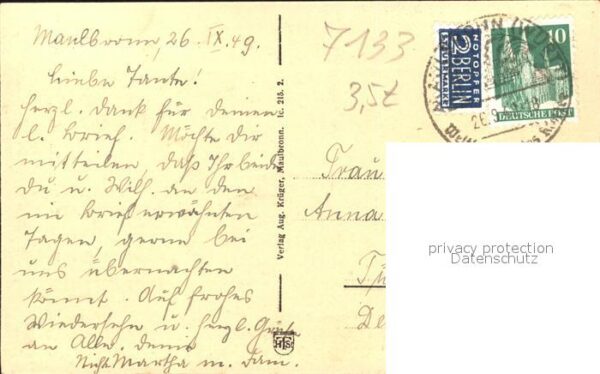 Maulbronn, 26. IX. 49.
Liebe Tante!
Herzl. Dank für deinen
l. Brief. Möchte dir
mitteilen, daß Ihr beide
du u. Wilh. an den
im Brief erwähnten
Tagen, gerne bei
uns übernachten
könnt. Auf frohes
Wiedersehn u. herzl. Grüße
an Alle. deine
Nicht Martha m. Fam.
Verlag Aug. Krüger, Maulbronn. Ic. 215. 2.
7133
3,5t
NOTOPFER
2 BERLIN
STEUERMARKE
10
DEUTSCHE POST
26.9.
Frau
Anna
privacy protection
Datenschutz